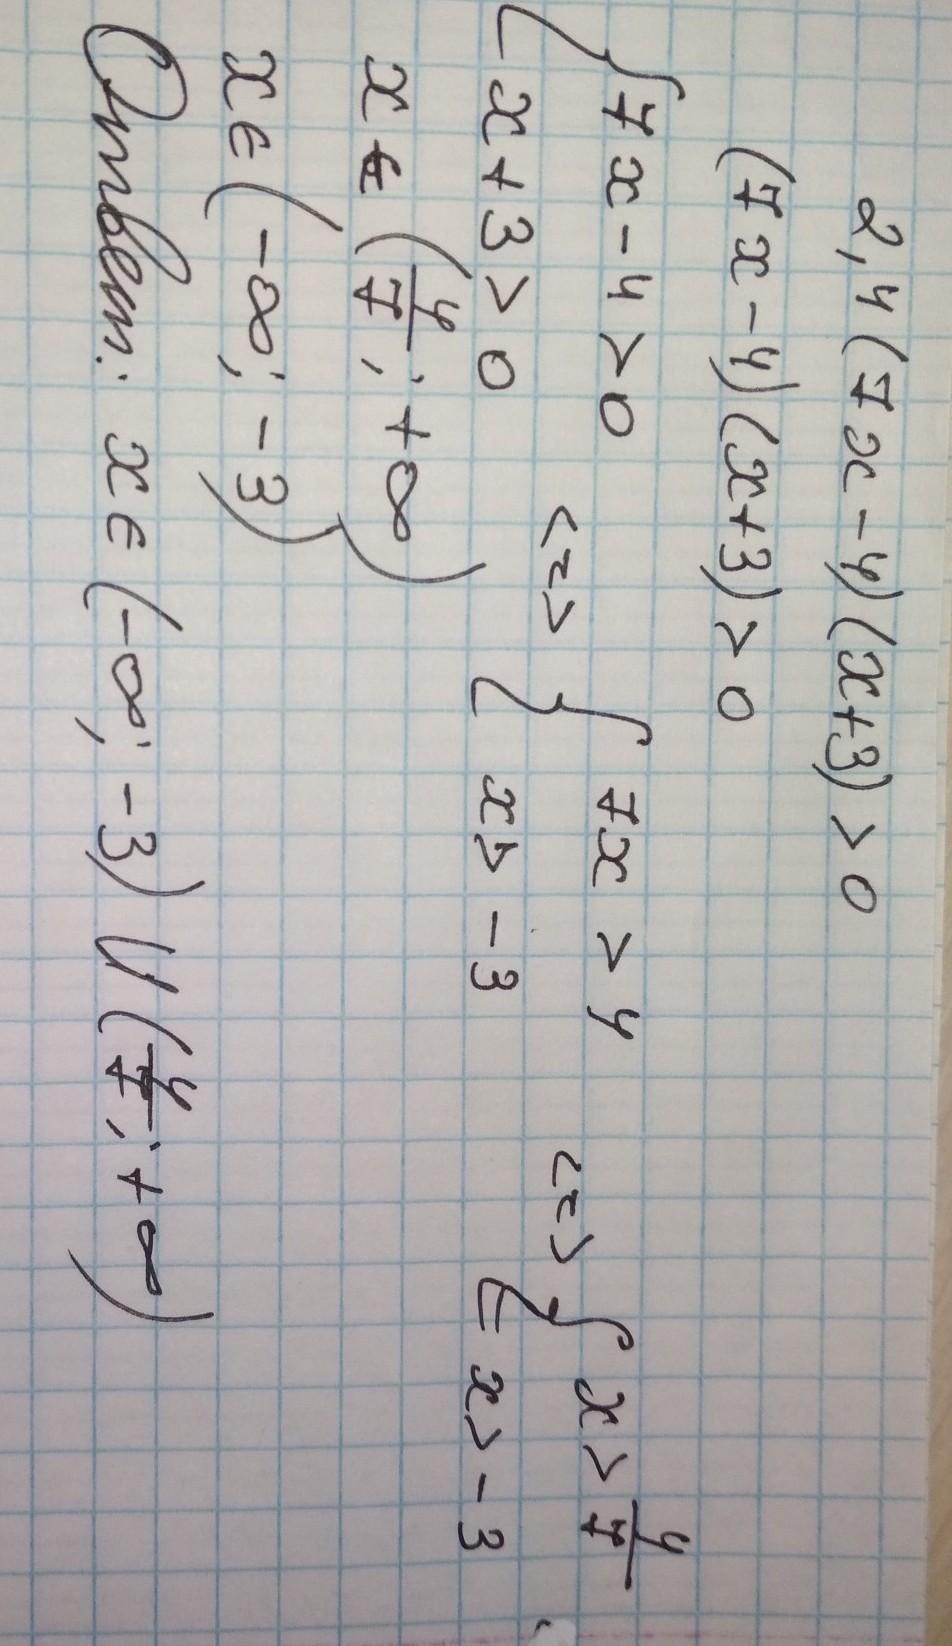 2,4(7x-4)(x+3)>0
(7x-4)(x+3)>0
{ 7x-4>0 <=> { 7x>4 <=> { x>4/7
x+3>0 x>-3 x>-3
x∈(4/7; +∞)
x∈(-∞; -3)
Ответ: x∈(-∞; -3)U(4/7; +∞)